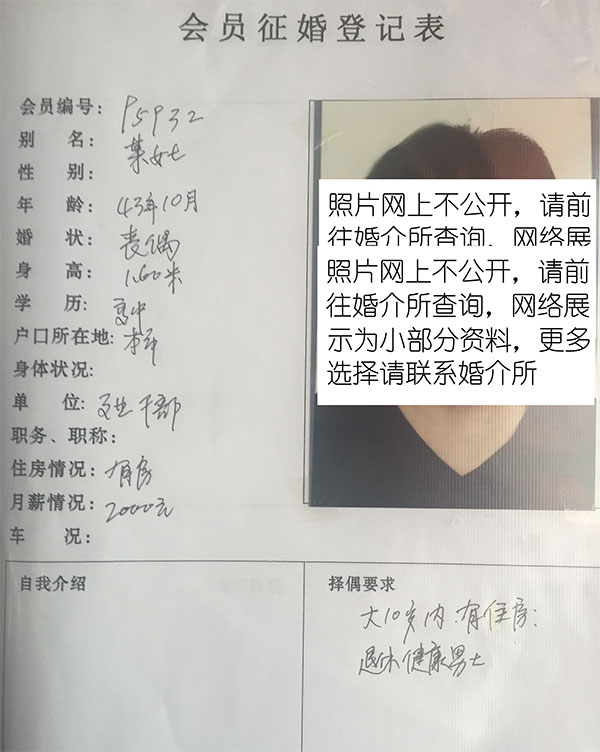 会员征婚登记表
会员编号: P5932
别 名: 某女士
性 别:
年 龄: 43年10月
婚 状: 丧偶
身 高: 1.60米
学 历: 高中
户口所在地: 本市
身体状况:
单 位: 企业干部
职务、职称:
住房情况: 有房
月薪情况: 2000元
车 况:
照片网上不公开，请前
往婚介所查询，网络展
照片网上不公开，请前
往婚介所查询，网络展
示为小部分资料，更多
选择请联系婚介所
自我介绍
择偶要求
大10岁内.有住房:
退休健康男士